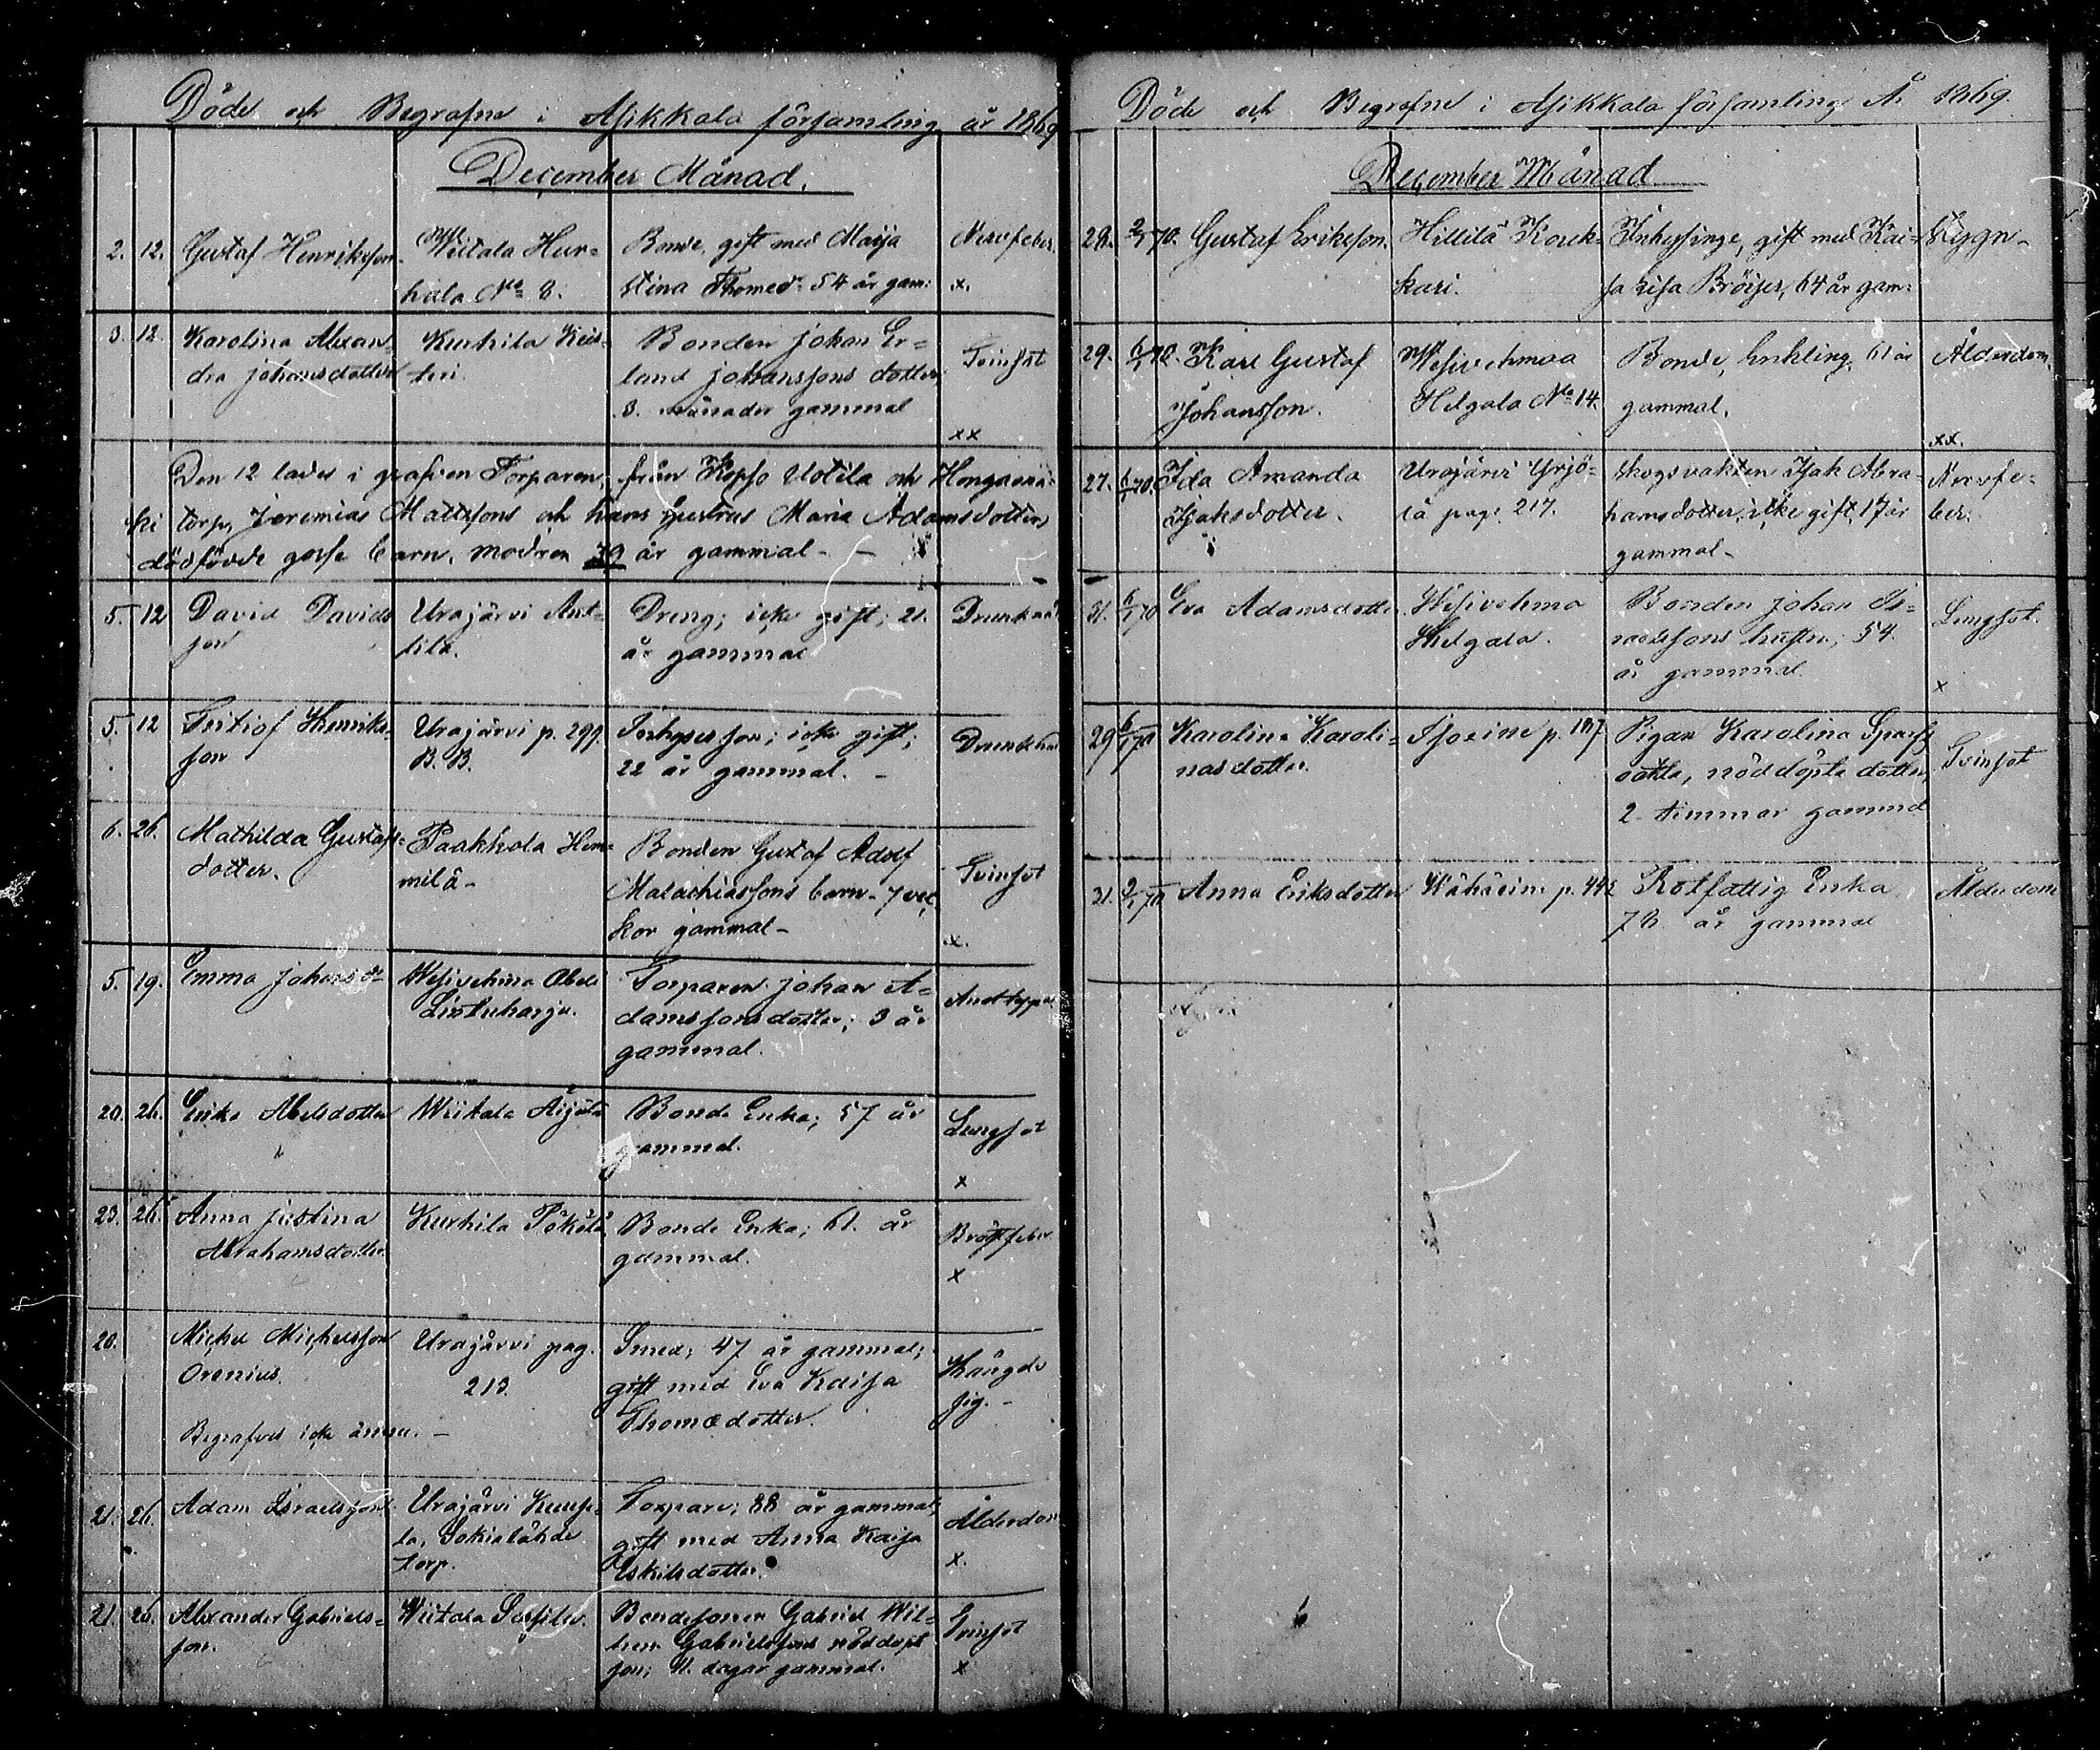 Döde och Begrafne i Asikkala församling år 1869
December Månad.
2. 12. Gustaf Henriksson Wiitala Hur= Bonde, gift med Maija Nervfeber.
hala No 8. Stina Thomed. 54 år gam: x.
3. 12. Karolina Alexan= Kurhila Keis= Bonden Johan Er= Tvinsot
dra Johansdotter teri. land Johanssons dotter,
3. månader gammal
xx
Den 12 lades i grafven Torparen, från Kopso Uotila och
ki torp, Jeremias Mattssons och hans hustrus Maria Adamsdotters
dödfödde gosse barn. modren år gammal -
5. 12 David Davids Urajärvi Ant= Dreng; icke gift; 21.
son tila. år gammal
5. 12 Henriks= Urajärvi p. 299. icke gift;
son B. B. 22 år gammal. -
6. 26. Mathilda Gustafs= Paakkola Hem= Bonden Gustaf Adolf Tvinsot
dotter. milä - Malachiassons barn - 7 vec=
kor gammal - x.
5. 19. Emma Johansd= Wesivehma Torparen Johan A=
Listuharju. damssons dotter; 3 år
gammal.
20. 26. Abelsdotter Wiitala Äijälä Bonde Enka; 57 år Lungsot
gammal. x
23. 26. Anna Justina Kurhila Pökölä Bonde Enka; 61. år Bröstfeber
Abrahamsdotter gammal. x
20. Michel Michelsson Urajärvi pag. Smed; 47 år gammal; Hängde
Orenius. 213. gift med Eva Kaisa sig. -
Thomædotter.
Begrafves icke ännu. -
21. 26. Adam Israelsson Urajärvi Torpare; 88 år gammal; Ålderdom
la, torp. gift med Anna Kaisa x.
Eskilsdotter.
21. 26. Alexander Gabriels= Wiitala Bondesonen Gabriel Wil= Tvinsot
son. Gabrielssons nöddöpt
son; 11. dagar gammal. x
Döde och Begrafne i Asikkala församling År 1869.
December Månad
28. 2/1 70. Gustaf Eriksson. Hillilä Kouk= Inhysinge, gift med Kai=
kari. sa Lisa Bröijer, 64 år gam:
29. 6/1 70. Karl Gustaf Wesivehmaa Bonde, Enkling, 61 år Ålderdom.
Johansson. Helgala No 14. gammal.
xx.
27. 6/1 70. Ida Amanda Urajärvi Yrjö= Skogsvakten Isak Abra= Nervfe=
Isaksdotter. lä pag. 217. hams dotter, icke gift, 17 år ber.
gammal -
31. 6/1 70 Eva Adamsdotter Wesivehma Bonden Johan Is= Lungsot.
Helgala. raelssons hustru; 54.
år gammal. x
29 6/1 70 Karolina Karoli= p. 187 Pigan Karolina Tvinsot
nas dotter. nöddöpta dotter
2 timmar gammal
31. 2/1 70 Anna Eriksdotter Wähäeine p. 442 Rotfattig Enka Ålderdom
78 år gammal